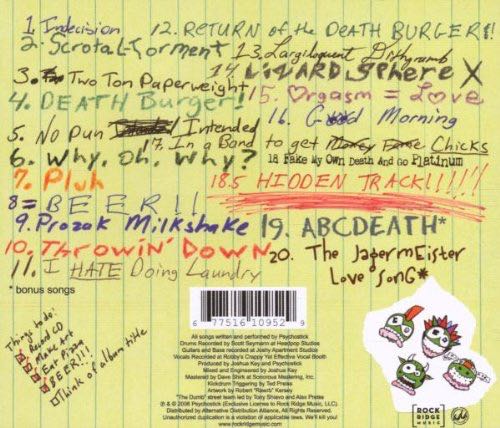 1. Indecision
2. Scrotal-Torment
3. Two Ton Paperweight
4. DEATH Burger!
5. No Pun Intended
6. Why, Oh, Why?
7. Pluh
8= BEER!!
9. Prozak Milkshake
10. Throwin' Down
11. I HATE Doing Laundry
* bonus songs
12. RETURN of the DEATH BURGER!!
13. Largiloquent Dithyramb
14. LIZARD Sphere X
15. Orgasm = Love
16. Good Morning
17. In a Band
to get Money Fame Chicks
18 Fake My Own Death and Go Platinum
18.5 HIDDEN TRACK!!!!!
19. ABCDEATH*
20. The Jagermeister
Love Song*
Things to do:
Record CD
Make Art
Eat Pizza
BEER!!!
Think of album title
6 77516 10952 9
All songs written and performed by Psychostick
Drums Recorded by Scott Seymann at Headpop Studios
Guitars and Bass recorded at Joshy Apartment Studios
Vocals Recorded at Robby's Crappy Yet Effective Vocal Booth
Produced by Joshua Key and Psychostick
Mixed and Engineered by Joshua Key
Mastered by Dave Shirk at Sonorous Mastering, Inc.
Kickdrum Triggering by Ted Preiss
Artwork by Robert "Rawrb" Kersey
"The Dumb" street team led by Tony Shiavo and Alex Preiss
℗ & © 2006 Psychostick (Exclusive License to Rock Ridge Music, LLC).
Distributed by Alternative Distribution Alliance, All Rights Reserved.
Unauthorized duplication is a violation of applicable laws. We'll kill you!
www.rockridgemusic.com
ROCK
RIDGE
MUSIC